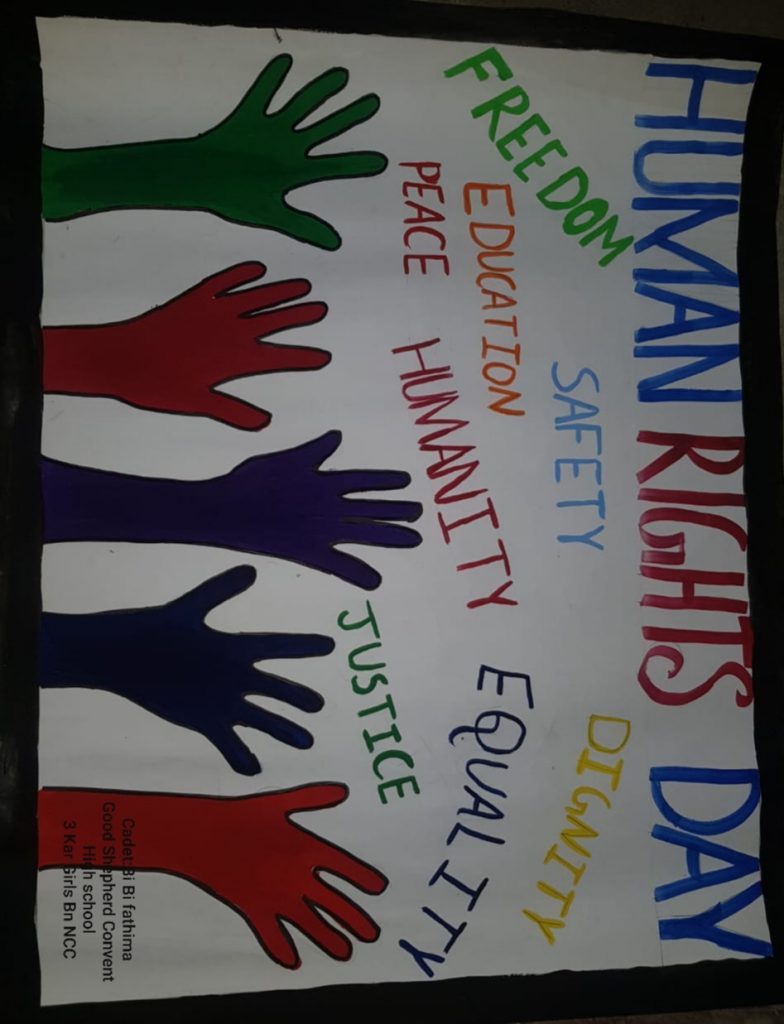 HUMAN RIGHTS DAY
FREEDOM
SAFETY
DIGNITY
EDUCATION
EQUALITY
PEACE
HUMANITY
JUSTICE
Cadet:Bi Bi fathima
Good Shepherd Convent
High school
3 Kar Girls Bn NCC